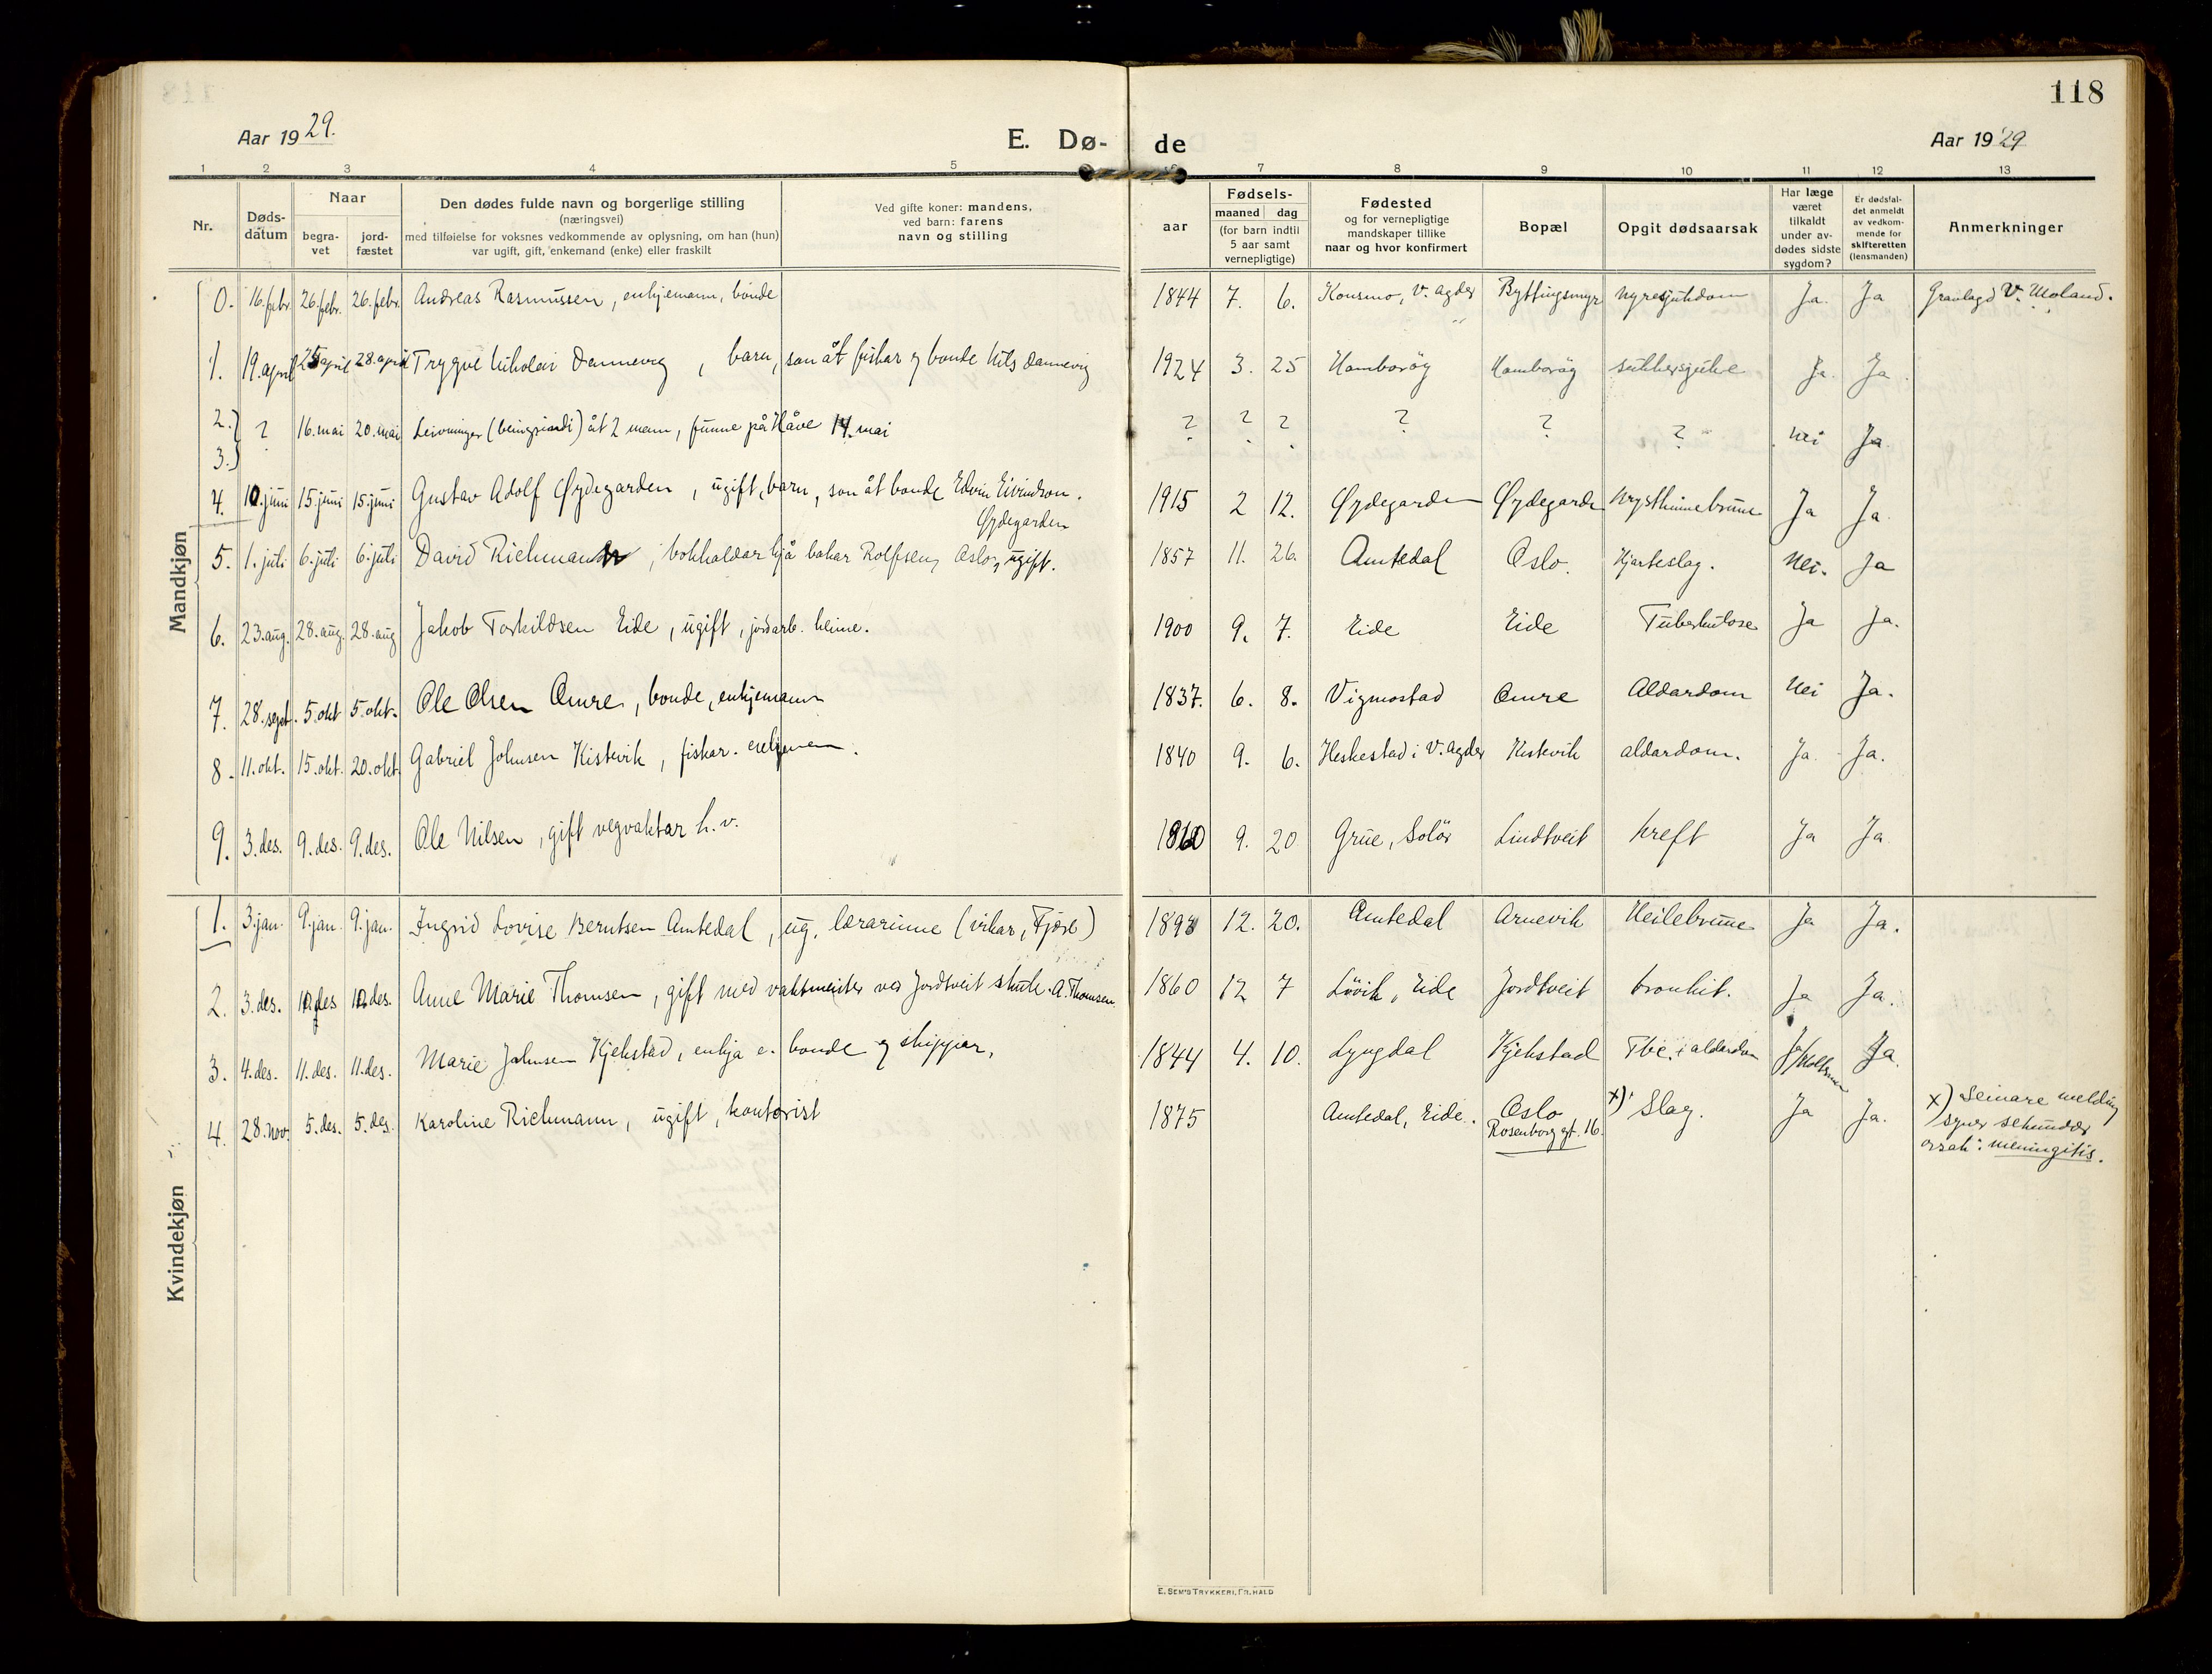 118
Aar 1929.
E. Dø- de
Aar 1929
1 2 3 4 5 7 8 9 10 11 12 13
Nr.
Døds-
datum
Naar
begra-
vet
jord-
fæstet
Den dødes fulde navn og borgerlige stilling
(næringsvei)
med tilføielse for voksnes vedkommende av oplysning, om han (hun)
var ugift, gift, enkemand (enke) eller fraskilt
Ved gifte koner: mandens,
ved barn: farens
navn og stilling
aar
Fødsels-
maaned dag
(for barn indtil
5 aar samt
vernepligtige)
Fødested
og for vernepligtige
mandskaper tillike
naar og hvor konfirmert
Bopæl
Opgit dødsaarsak
Har læge
været
tilkaldt
under av-
dødes sidste
sygdom?
Er dødsfal-
det anmeldt
av vedkom-
mende for
skifteretten
(lensmanden)
Anmerkninger
Mandkjøn
0. 16. febr. 26. febr. 26. febr. Andreas Rasmussen, enkjemann, bonde 1844 7. 6. Konsmo, V. Agder Ryttingsmyr nyresjukdom Ja. Ja Gravlagd V. Moland.
1. 19. april 25 april 28. april Trygve Nikolai Dannevig, barn, son åt fiskar og bonde Nils Dannevig 1924 3. 25 Homborøy Homborøy sukkersjuke Ja. Ja.
2.) ? 16. mai 20. mai Leivninger (beingrindi) åt 2 mann, funne på Håve 14. mai ? ? ? ? ? ? Nei Ja.
3.)
4. 10. juni 15. juni 15. juni Gustav Adolf Øydegarden, ugift, barn, son åt bonde Edvin Eivindson. 1915 2 12. Øydegarden Øydegarden Brysthinnebrune Ja Ja.
Øydegarden
5. 1. juli 6. juli 6. juli David Richmann, bokhaldar hjå bakar Rolfsen, Oslo, ugift. 1857 11. 26. Amtedal Oslo. Hjarteslag. Nei. Ja
6. 23. aug. 28. aug. 28. aug Jakob Torkildsen Eide, ugift, jordarb. heime. 1900 9. 7. Eide Eide Tuberkulose Ja Ja.
7. 28. sept. 5. okt 5. okt. Ole Olsen Omre, bonde, enkjemann 1837. 6. 8. Vigmostad Omre Aldardom Nei Ja.
8. 11. okt. 15. okt. 20. okt. Gabriel Johnsen Kistevik, fiskar. enkjemann. 1840 9. 6. Heskestad i V. Agder Kistevik aldardom. Ja. Ja.
9. 3. des. 9. des. 9. des. Ole Nilsen, gift vegvaktar h. v. 1860 9. 20 Grue, Solør Lindtveit Kreft Ja Ja.
Kvindekjøn
1. 3. jan. 9. jan. 9. jan. Ingrid Lovise Berntsen Amtedal, ug. lærarinne (vikar, Fjære) 12. 20. Amtedal Arnevik Heilebrune Ja Ja.
2. 3. des. 10. des 10. des. Anne Marie Thomsen, gift med vaktmeister ved Jordtveit skule. A. Thomsen. 1860 12 7 Løvik, Eide Jordtveit bronkit. Ja Ja.
3. 4. des. 11. des. 11. des. Marie Johnsen Kjekstad, enkja e. bonde og skipper, 1844 4. 10. Lyngdal Kjekstad Tbc. i aldardom Ja/ Ja.
4. 28. nov. 5. des. 5. des. Karoline Richmann, ugift, kontorist 1875 Amtedal, Eide. Oslo x) Slag. Ja Ja. x) Seinare melding
Rosenborg gt. 16. syner sekundær
orsak: meningitis.
E. SEM'S TRYKKERI, FR. HALD